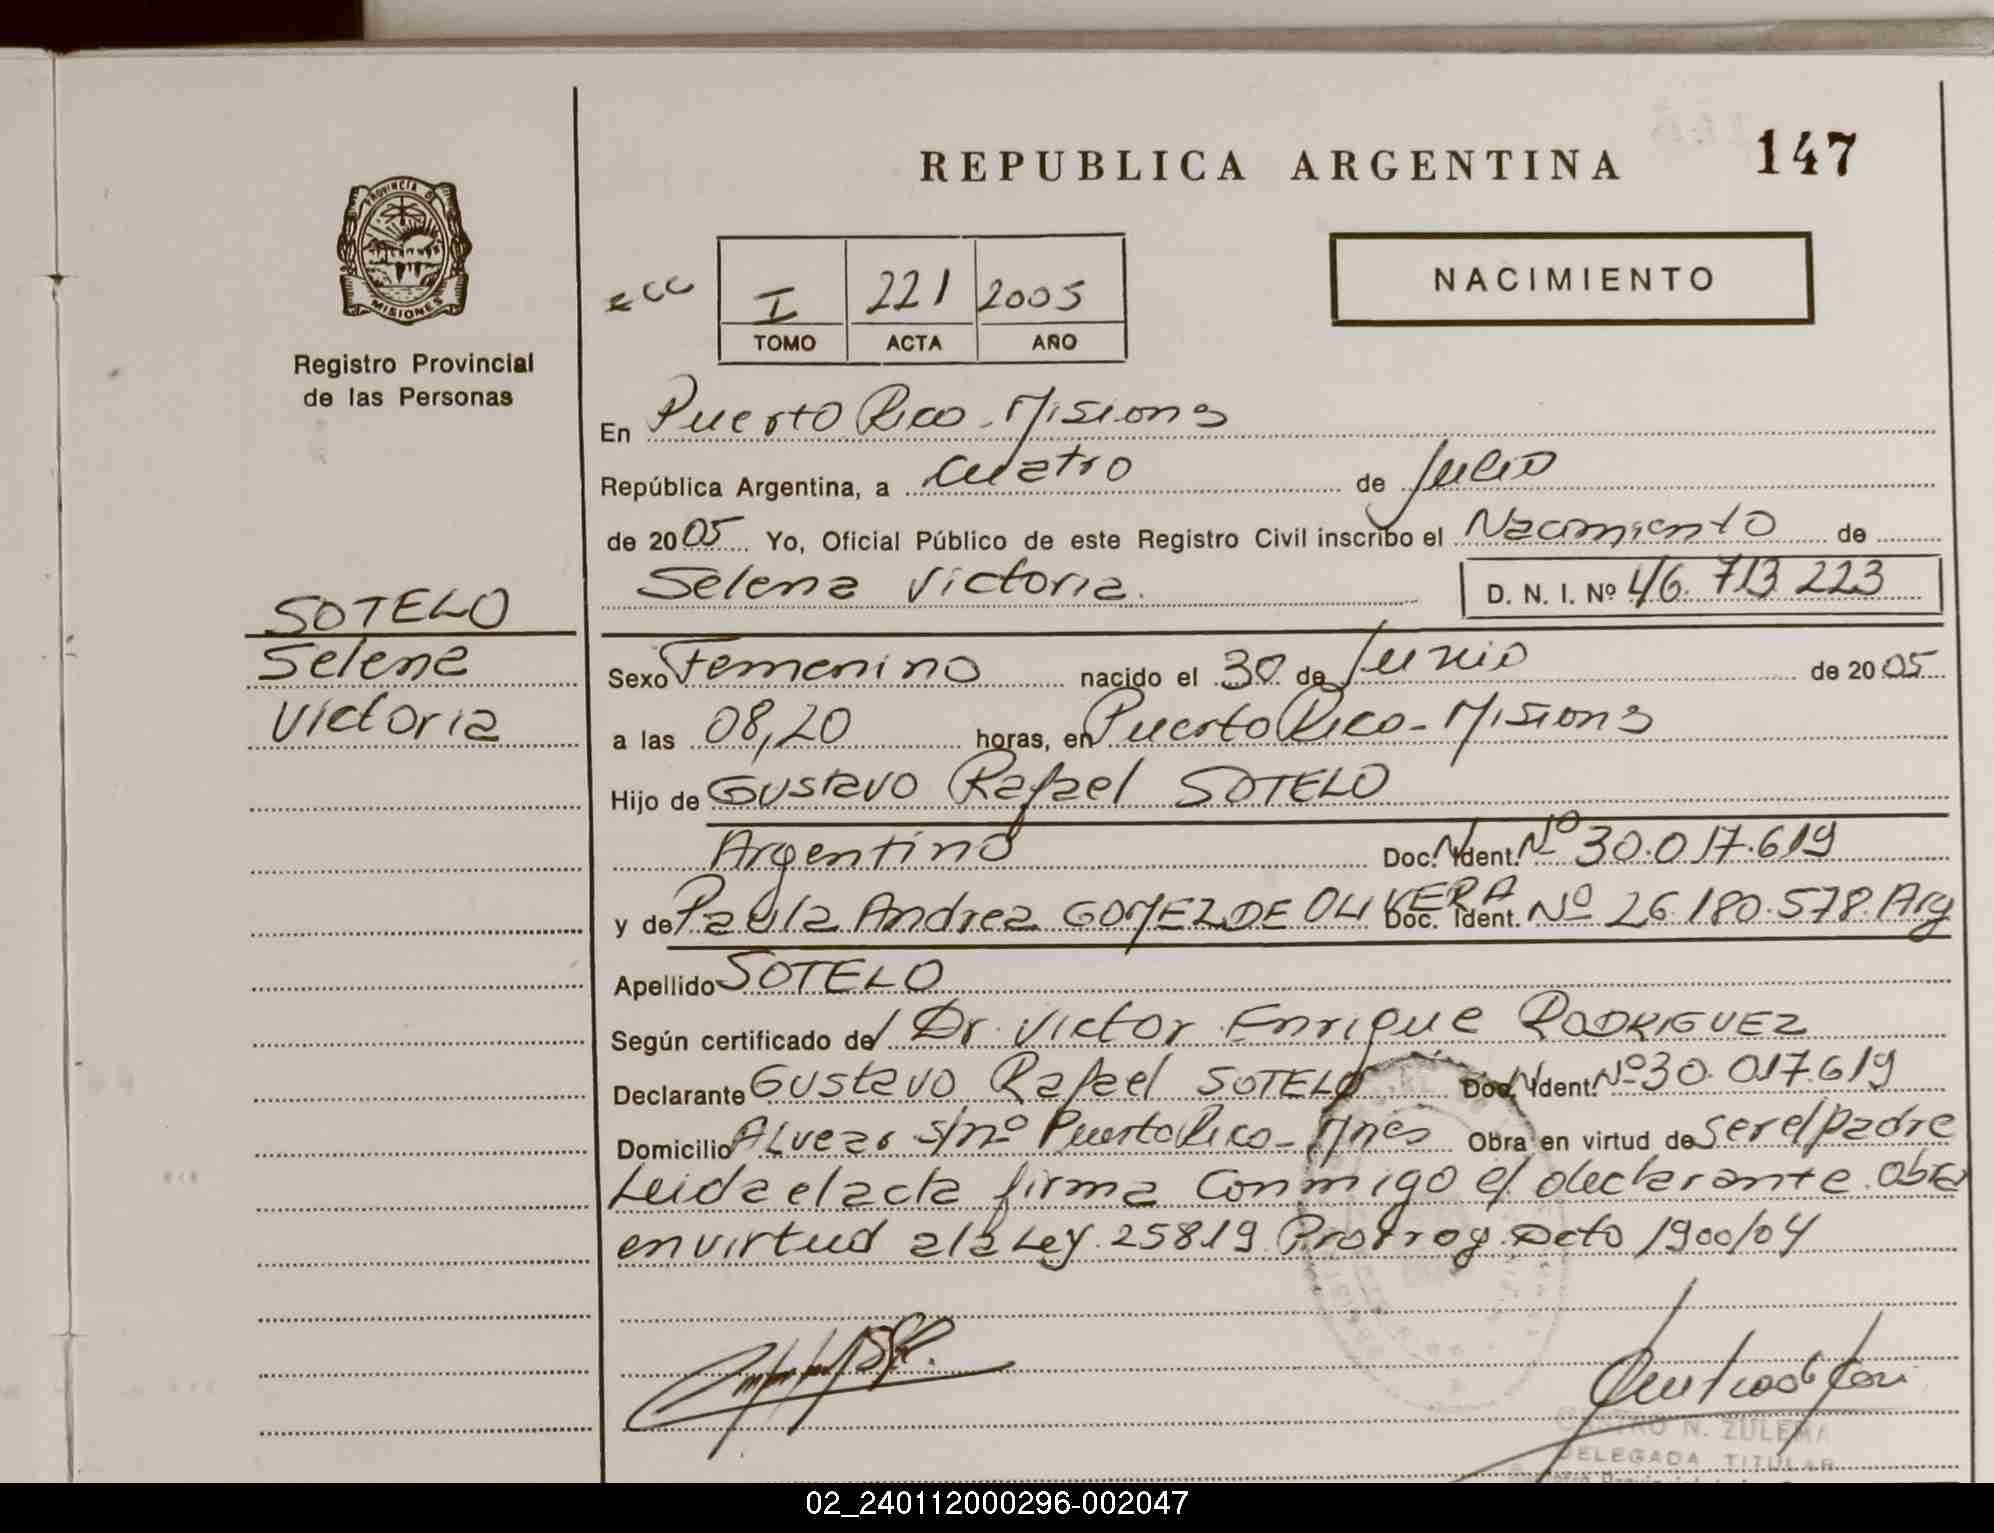 REPUBLICA ARGENTINA
147
PROVINCIA DE
MISIONES
Registro Provincial
de las Personas
I 221 2005
TOMO ACTA AÑO
NACIMIENTO
En Puerto Rico - Misiones
República Argentina, a Cuatro de Julio
de 2005 Yo, Oficial Público de este Registro Civil inscribo el Nacimiento de
Selena Victoria.
D. N. I. Nº 46.713 223
SOTELO
Selena
Victoria
Sexo Femenino nacido el 30 de Junio de 2005
a las 08,20 horas, en Puerto Rico - Misiones
Hijo de Gustavo Rafael SOTELO
Argentino Doc. N Ident. Nº 30.017.619
y de Paula Andrea GOMEZ DE OLIVERA Doc. Ident. Nº 26.180.578 Arg
Apellido SOTELO
Según certificado de/ Dr. Victor Enrique RODRIGUEZ
Declarante Gustavo Rafael SOTELO Doc. N Ident. Nº 30.017.619
Domicilio Alvear s/nº Puerto Rico - Mnes Obra en virtud de ser el padre
Leida el acta firma conmigo el declarante. Obra
en virtud a la Ley 25819 Prorrog. Dcto 1900/04
CASTRO N. ZULEMA
DELEGADA TITULAR
02_240112000296-002047